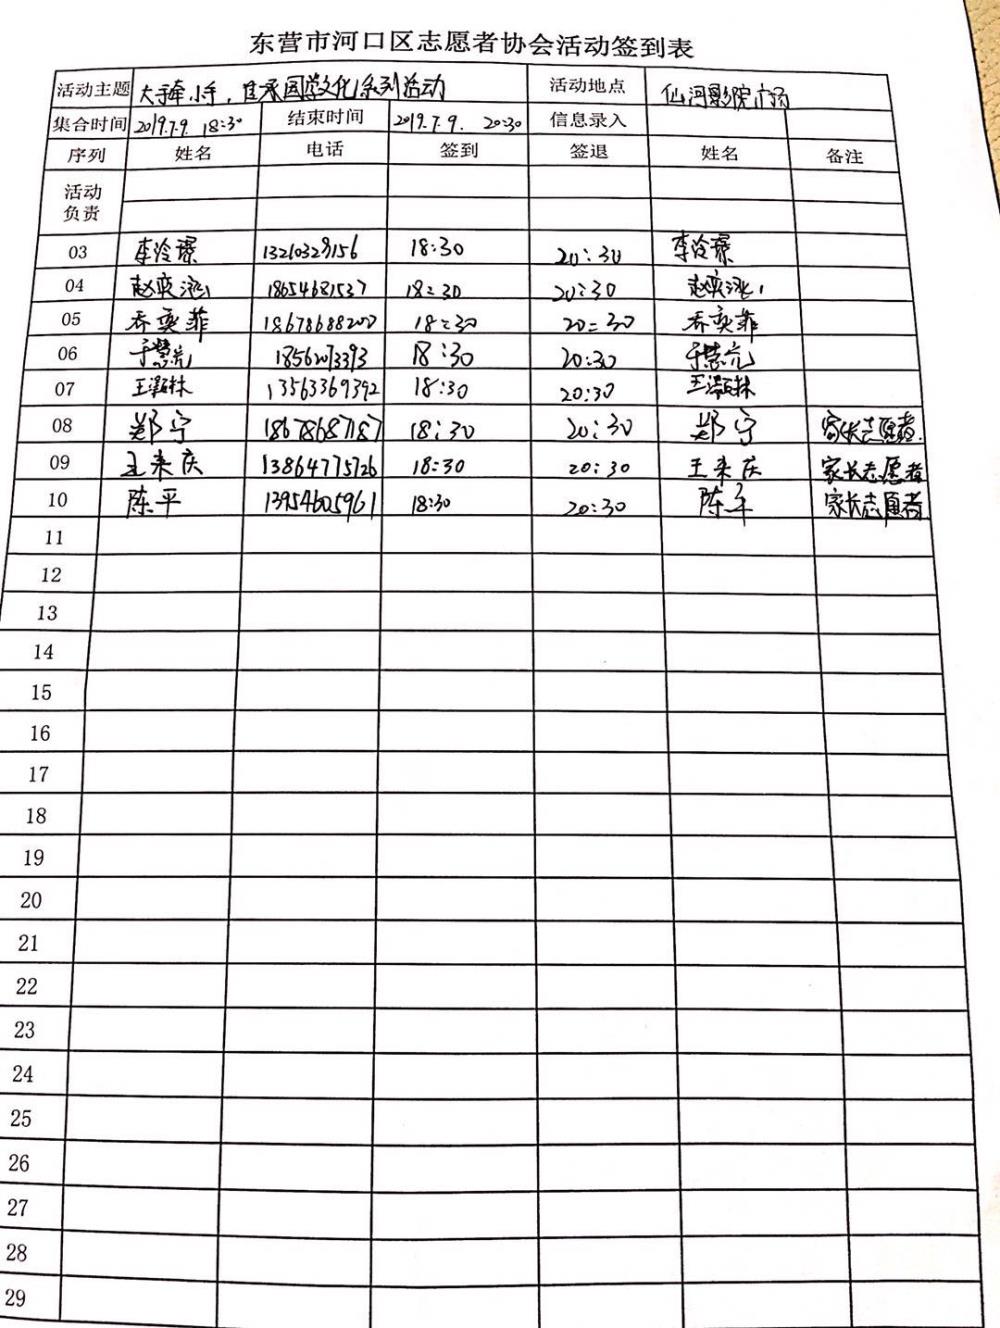 东营市河口区志愿者协会活动签到表
活动主题 大手牵小手，传承国学文化系列活动 活动地点 仙河影院广场
集合时间 2019.7.9. 18:30 结束时间 2019.7.9. 20:30 信息录入
序列 姓名 电话 签到 签退 姓名 备注
活动
负责
03 李冷璨 13210329156 18:30 20:30 李冷璨
04 赵奕涵 18654681537 18:30 20:30 赵奕涵
05 乔奕菲 18678688202 18:30 20:30 乔奕菲
06 于慧亢 18562073393 18:30 20:30 于慧亢
07 王灏林 13563369392 18:30 20:30 王灏林
08 郑宁 18678687187 18:30 20:30 郑宁 家长志愿者.
09 王来庆 13864775726 18:30 20:30 王来庆 家长志愿者
10 陈平 13954605961 18:30 20:30 陈平 家长志愿者.
11
12
13
14
15
16
17
18
19
20
21
22
23
24
25
26
27
28
29